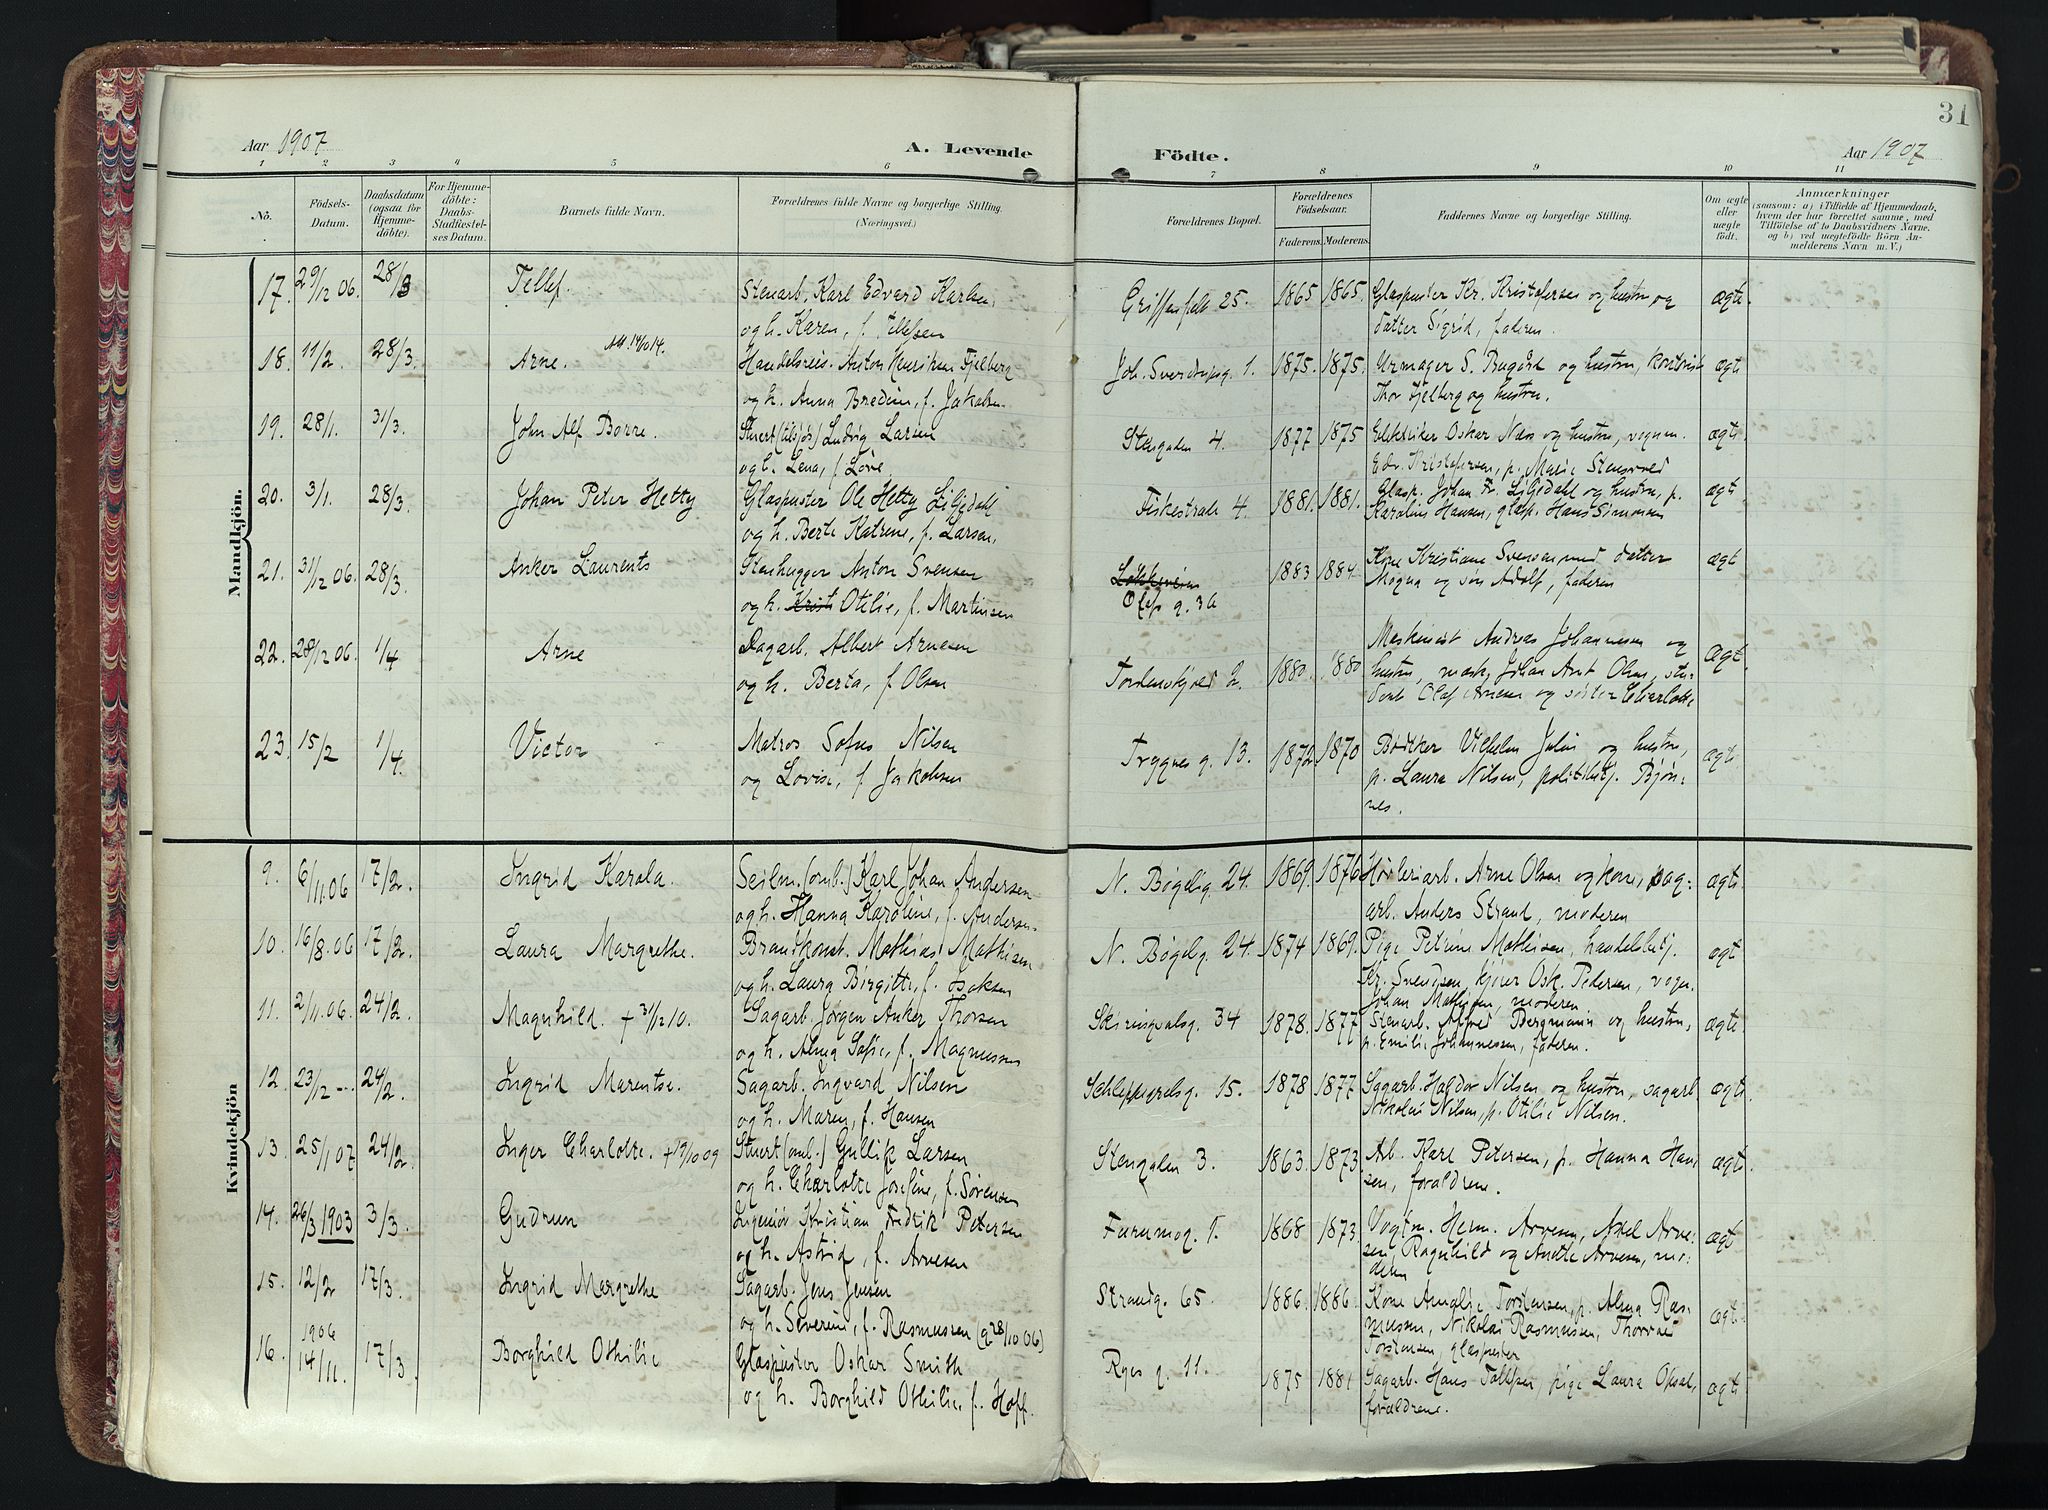 31
Aar 1907
A. Levende
Födte.
Aar 1907
1 2 3 4 5 6 7 8 9 10 11
No.
Födsels-Datum.
Daabsdatum (ogsaa for Hjemme-döbte).
For Hjemme-döbte: Daabs-Stadfæstel-ses Datum.
Barnets fulde Navn.
Forældrenes fulde Navne og borgerlige Stilling. (Næringsvei.)
Forældrenes Bopæl.
Forældrenes Födselsaar.
Faderens. Moderens.
Faddernes Navne og borgerlige Stilling.
Om ægte eller uægte födt.
Anmærkninger
(saasom: a) i Tilfælde af Hjemmedaab,
hvem der har forrettet samme, med
Tilföielse af to Daabsvidners Navne,
og b) ved uægtefödte Börn An-
melderens Navn m. V.)
Mandkjön.
17. 29/12 06. 28/3 Tellef. Stenarb. Karl Edvard Karlsen Griffenfelt 25. 1865 1865. Glaspuster Kr. Kristofersen og hustru og ægte
og h. Karen, f. Tellefsen datter Sigrid, faderen.
18. 11/2. 28/3. Arne. Handelsreis. Anton Henriksen Fjelberg Joh. Sverdrupsg. 1. 1875. 1875. Urmager S. Bugård og hustru, ægte
og h. Anna Bredine, f. Jakobsen Thor Fjelberg og hustru.
19. 28/1. 31/3. John Alf Borre. Stuert (tilsjøs) Ludvig Larsen Stengaten 4. 1877 1875 Elektriker Oskar Næss og hustru, vognm. ægte
og h. Lena, f. Løve Edv. Kristofersen, p. Marie
20. 3/1. 28/3. Johan Peter Hetty Glaspuster Ole Hetty Liljedahl Fiskestrale 4. 1881. 1881. Glasp. Johan Fr. Liljedahl og hustru, p. ægte
og h. Berte Katrine, f. Larsen. Karoline Hansen, glasp. Hans Simonsen
21. 31/12 06. 28/3. Anker Laurents Stenhugger Anton Svensen 1883 1884. Kone Kristiane Svensen med datter ægt
og h. Krist Otilie, f. Martinsen g. 3a Magna og søn Adolf, faderen
22. 28/12 06. 1/4 Arne Dagarb. Albert Arnesen Tordenskjold 2. 1880. 1880 Maskinist Andreas Johannesen og ægt.
og h. Berta, f. Olsen hustru, mask. Johan Ant Olsen, stu-
dent Olaf Arnesen og søster Charlotte
23. 15/2 1/4. Victor Matros Sofus Nilsen Trygves g. 13. 1872 1870 Bødtker Vilhelm Julin og hustru, ægte
og Lovise, f. Jakobsen p. Laura Nilsen, politibetj. Bjøn-
nes.
Kvindekjön
9. 6/11.06 17/2. Ingrid Karola. Seilm. (omb.) Karl Johan Andersen N. Bøgelig. 24. 1869. 1876 Høvleriarb. Arne Olsen og kone, sag- ægte
og h. Hanna Karoline, f. Andersen arb. Anders Strand, moderen
10. 16/8.06 17/2. Laura Margrethe. Brandkonst. Mathias Mathisen N. Bøgelig. 24. 1874 1869. Pige Petrine Mathisen, handelsbetj. ægt
og h. Laura Birgitte, f. Isaksen Kr. Svendsen, kjører Osk. Pedersen, vogn.
Johan Mathisen, moderen
11. 2/11.06. 24/2. Magnhild. + 31/12 10. Sagarb. Jørgen Anker Thorsen Skiringsalsg. 34 1878. 1877 Stenarb. Alfred Bergmann og hustru, ægte
og h. Alma Sofie, f. Magnussen p. Emilie Johannessen, faderen.
12. 23/12 -.. 24/2. Ingrid Marentse. Sagarb. Ingvard Nilsen Schleppegrelsg. 15. 1878 1877 Sagarb. Haldor Nilsen og hustru, sagarb. ægte
og h. Maren, f. Hansen Nikolai Nilsen, p. Otilie Nilsen.
13. 25/1 07 24/2. Inger Charlotte. + 19/10 09 Stuert (omb.) Gullik Larsen Stengaten 3. 1863. 1873 Arb. Karl Petersen, p. Hanna Han- ægte
og h. Charlotte Josefine, f. Sørensen sen, forældrene.
14. 26/3 1903 3/3. Gudrun Ingeniør Kristian Fredrik Petersen Furumog. 1868 1873. Vogtm. Herm. Arvesen, Axel Arve- ægt
og h. Astrid, f. Arvesen sen, Ragnhild og Anette Arvesen, mo-
deren
15. 12/2 17/3. Ingrid Margrethe Sagarb. Jens Jensen Strandg. 65. 1886. 1886. Kone Amalie Torstensen, p. Alma Ras- ægt
og h. Severine, f. Rasmussen (g 28/10 06) mussen, Nikolai Rasmussen,
Torstensen, glaspuster
16. 1906 14/11. 17/3. Borghild Othilie Glaspuster Oskar Smith Ryes g. 11. 1875 1881 Sagarb. Hans Tollefsen, pige Laura ægte
og h. Borghild Othilie, f. Hoff. forældrene.